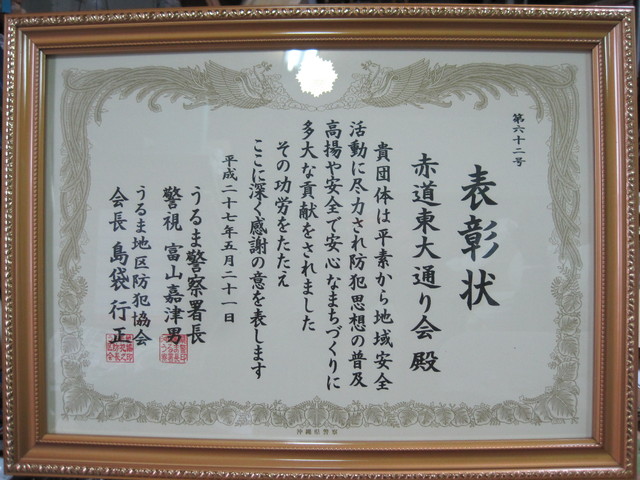 第六十二号
表彰状
赤道東大通り会 殿
貴団体は平素から地域安全
活動に尽力され防犯思想の普及
高揚や安全で安心なまちづくりに
多大な貢献をされました
その功労をたたえ
ここに深く感謝の意を表します
平成二十七年五月二十一日
うるま警察署長
警視 富山嘉津男
うるま地区防犯協会
会長 島袋行正
沖縄県警察